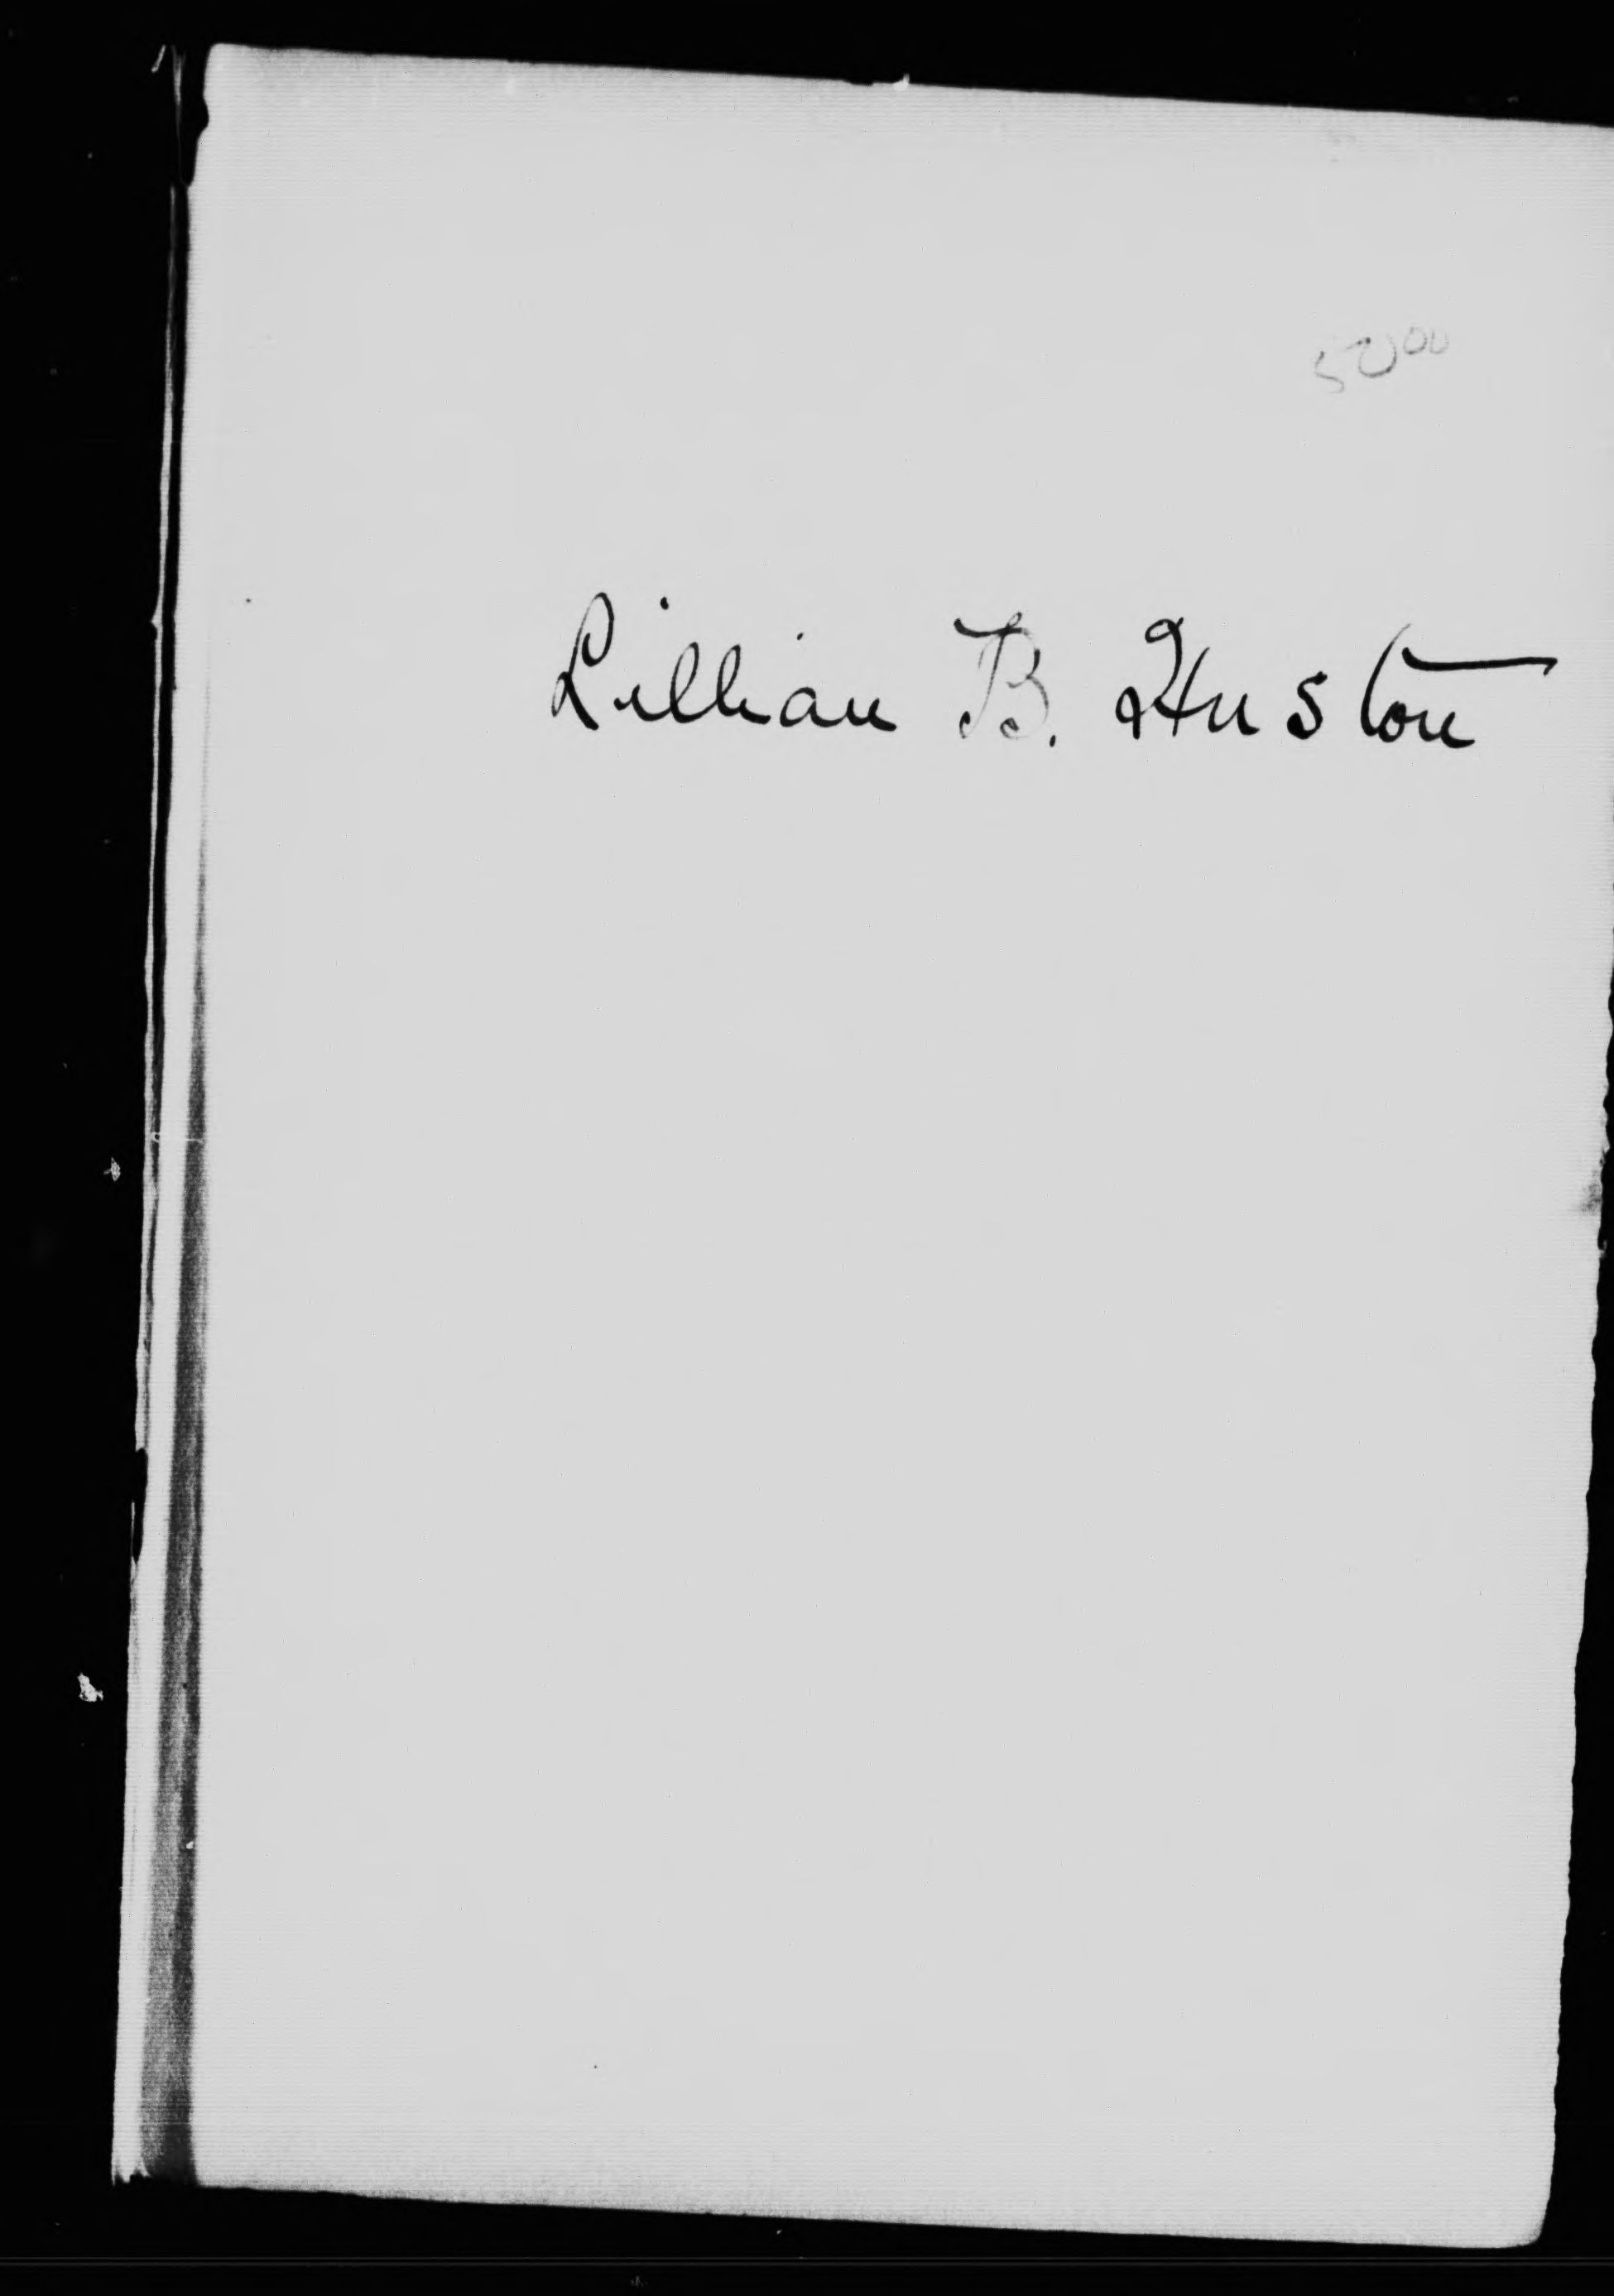 50 00
Lillian B. Huston